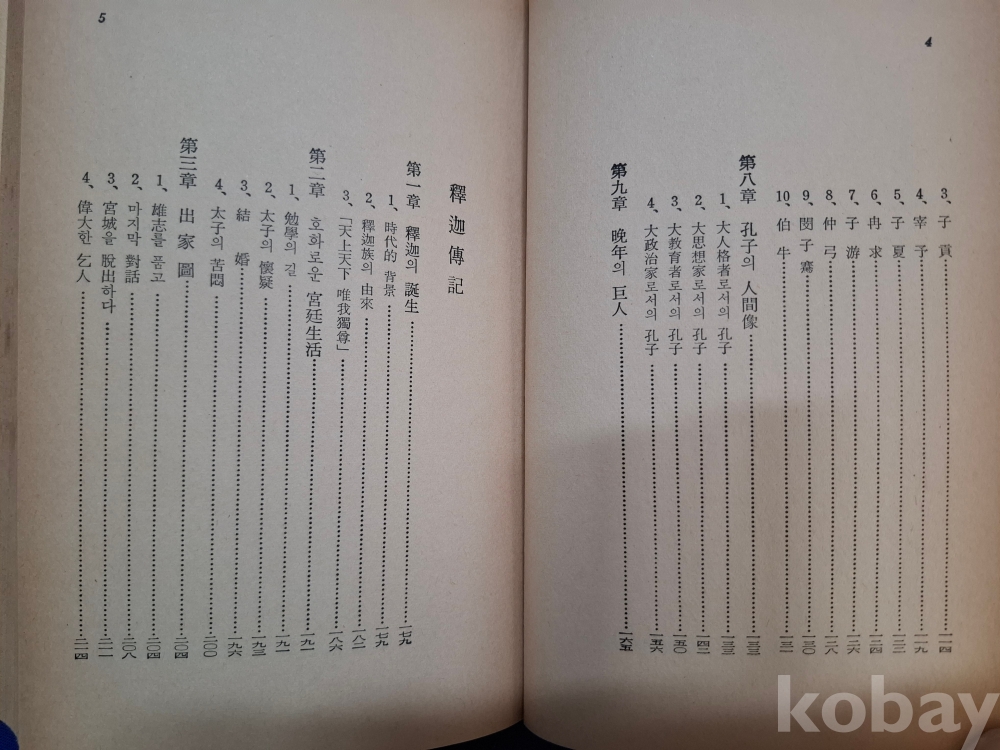 4
3、子貢……一一四
4、宰予……一一九
5、子夏……一二二
6、冉求……一二四
7、子游……一二六
8、仲弓……一二八
9、閔子騫……一三〇
10、伯牛……一三一
第八章 孔子의 人間像……一三三
1、大人格者로서의 孔子……一三三
2、大思想家로서의 孔子……一四二
3、大教育者로서의 孔子……一五〇
4、大政治家로서의 孔子……一五六
第九章 晩年의 巨人……一六五
5
釋迦傳記
第一章 釋迦의 誕生……一七九
1、時代的 背景……一七九
2、釋迦族의 由來……一八二
3、「天上天下 唯我獨尊」……一八六
第二章 호화로운 宮廷生活……一九一
1、勉學의 길……一九一
2、太子의 懷疑……一九三
3、結婚……一九六
4、太子의 苦悶……二〇〇
第三章 出家圖……二〇四
1、雄志를 품고……二〇四
2、마지막 對話……二〇八
3、宮城을 脫出하다……二一一
4、偉大한 乞人……二一四
kobay